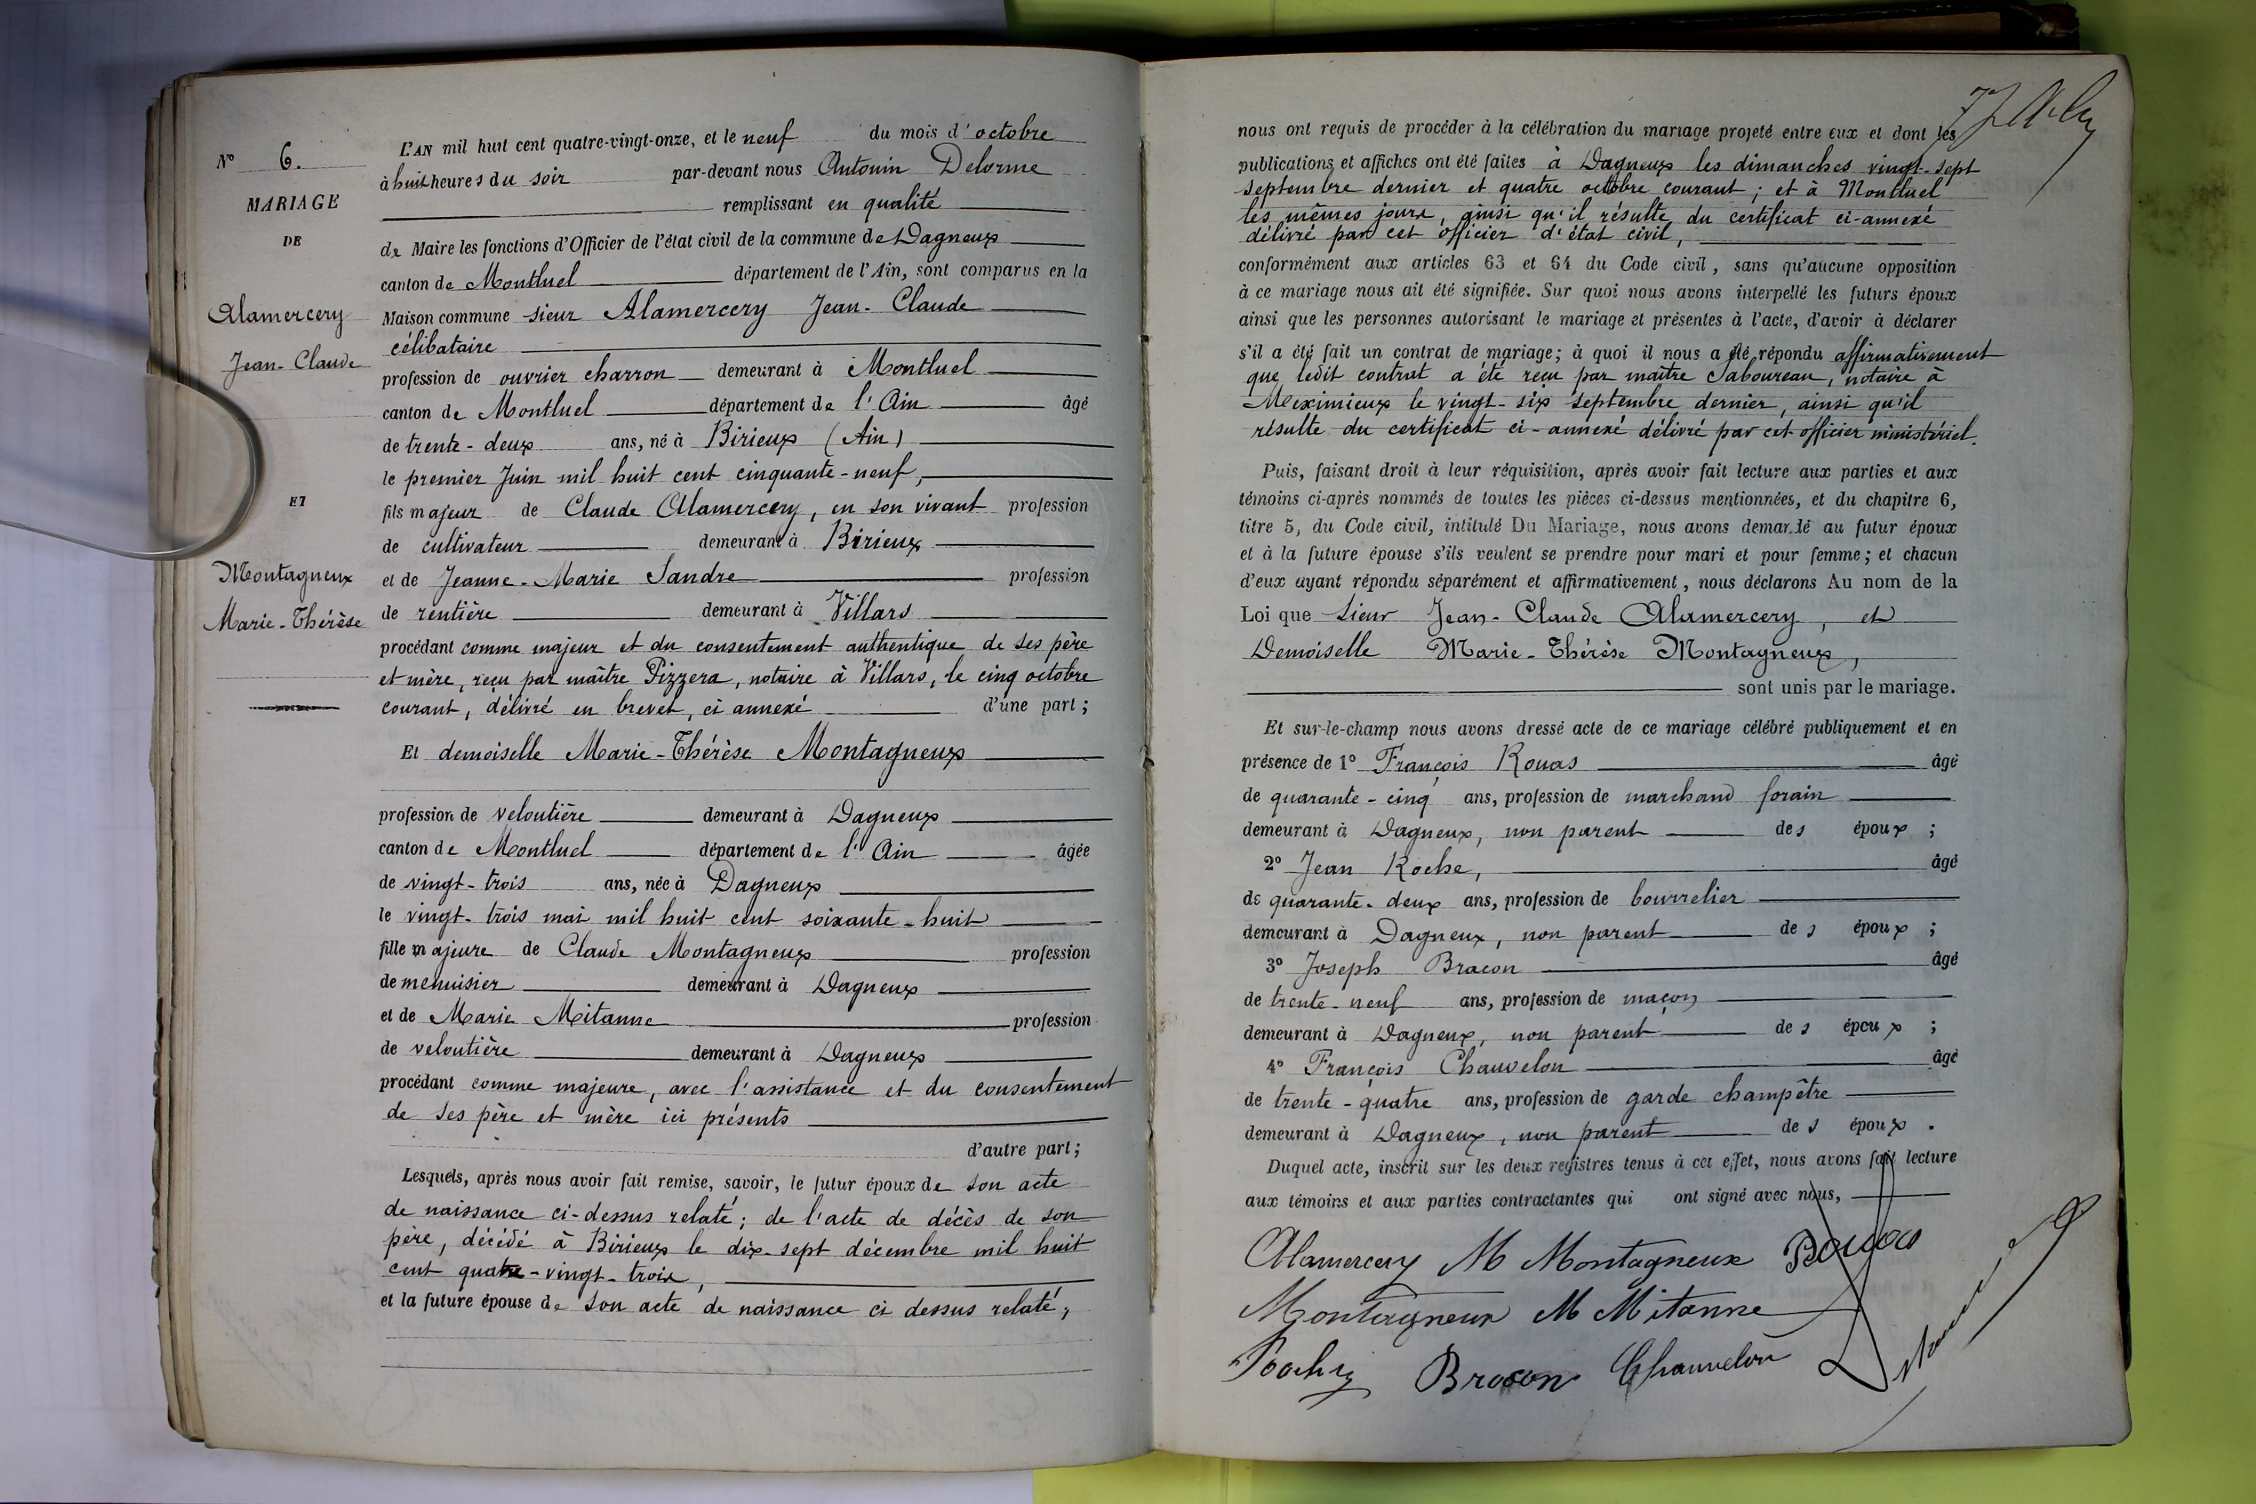 N° 6.
MARIAGE
DE
Alamercery
Jean-Claude
ET
Montagneux
Marie-Thérèse
L'AN mil huit cent quatre-vingt-onze, et le neuf du mois d'octobre
à huit heures du soir par-devant nous Antonin Delorme
remplissant en qualité
de Maire les fonctions d'Officier de l'état civil de la commune de Dagneux
canton de Montluel département de l'Ain, sont comparus en la
Maison commune sieur Alamercery Jean-Claude
célibataire
profession de ouvrier charron demeurant à Montluel
canton de Montluel département de l'Ain âgé
de trente-deux ans, né à Birieux (Ain)
le premier Juin mil huit cent cinquante-neuf,
fils majeur de Claude Alamercery, en son vivant profession
de cultivateur demeurant à Birieux
et de Jeanne-Marie Sandre profession
de rentière demeurant à Villars
procédant comme majeur et du consentement authentique de ses père
et mère, reçu par maître Pizzera, notaire à Villars, le cinq octobre
courant, délivré en brevet, ci annexé d'une part;
Et demoiselle Marie-Thérèse Montagneux
profession de veloutière demeurant à Dagneux
canton de Montluel département de l'Ain âgée
de vingt-trois ans, née à Dagneux
le vingt-trois mai mil huit cent soixante-huit
fille majeure de Claude Montagneux profession
de menuisier demeurant à Dagneux
et de Marie Mitanne profession
de veloutière demeurant à Dagneux
procédant comme majeure, avec l'assistance et du consentement
de ses père et mère ici présents
d'autre part;
Lesquels, après nous avoir fait remise, savoir, le futur époux de son acte
de naissance ci-dessus relaté; de l'acte de décès de son
père, décédé à Birieux le dix-sept décembre mil huit
cent quatre-vingt-trois,
et la future épouse de son acte de naissance ci dessus relaté,
nous ont requis de procéder à la célébration du mariage projeté entre eux et dont les
publications et affiches ont été faites à Dagneux les dimanches vingt-sept
septembre dernier et quatre octobre courant; et à Montluel
les mêmes jours, ainsi qu'il résulte du certificat ci-annexé
délivré par cet officier d'état civil,
conformément aux articles 63 et 64 du Code civil, sans qu'aucune opposition
à ce mariage nous ait été signifiée. Sur quoi nous avons interpellé les futurs époux
ainsi que les personnes autorisant le mariage et présentes à l'acte, d'avoir à déclarer
s'il a été fait un contrat de mariage; à quoi il nous a été répondu affirmativement
que ledit contrat a été reçu par maître Saboureau, notaire à
Meximieux le vingt-six septembre dernier, ainsi qu'il
résulte du certificat ci-annexé délivré par cet officier ministériel.
Puis, faisant droit à leur réquisition, après avoir fait lecture aux parties et aux
témoins ci-après nommés de toutes les pièces ci-dessus mentionnées, et du chapitre 6,
titre 5, du Code civil, intitulé Du Mariage, nous avons demandé au futur époux
et à la future épouse s'ils veulent se prendre pour mari et pour femme; et chacun
d'eux ayant répondu séparément et affirmativement, nous déclarons Au nom de la
Loi que sieur Jean-Claude Alamercery, et
Demoiselle Marie-Thérèse Montagneux,
sont unis par le mariage.
Et sur-le-champ nous avons dressé acte de ce mariage célébré publiquement et en
présence de 1° François Rouas âgé
de quarante-cinq ans, profession de marchand forain
demeurant à Dagneux, non parent des époux;
2° Jean Roche, âgé
de quarante-deux ans, profession de bourrelier
demeurant à Dagneux, non parent des époux;
3° Joseph Bracon âgé
de trente-neuf ans, profession de maçon
demeurant à Dagneux, non parent des époux;
4° François Chauvelon âgé
de trente-quatre ans, profession de garde champêtre
demeurant à Dagneux, non parent des époux.
Duquel acte, inscrit sur les deux registres tenus à cet effet, nous avons fait lecture
aux témoins et aux parties contractantes qui ont signé avec nous,
Alamercery M Montagneux Rouas
Montagneux M Mitanne
Bracon Chauvelon